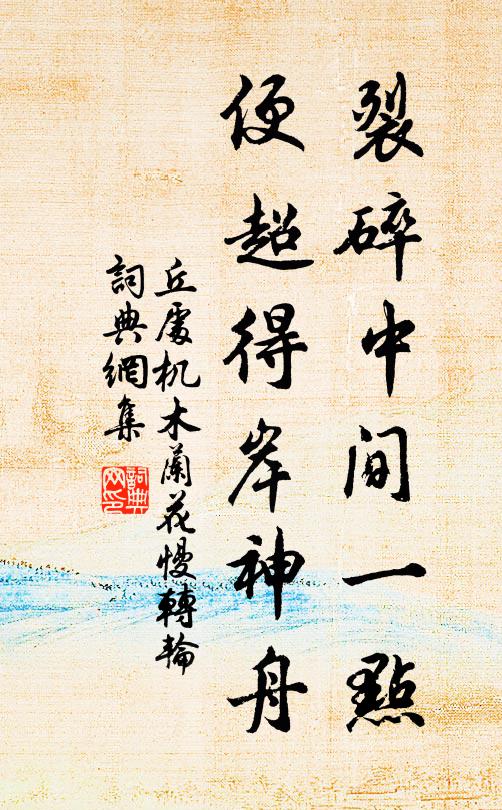 裂碎中間一點
便超得岸神舟
丘處机木蘭花慢轉輪
詞典網集
詞典網印